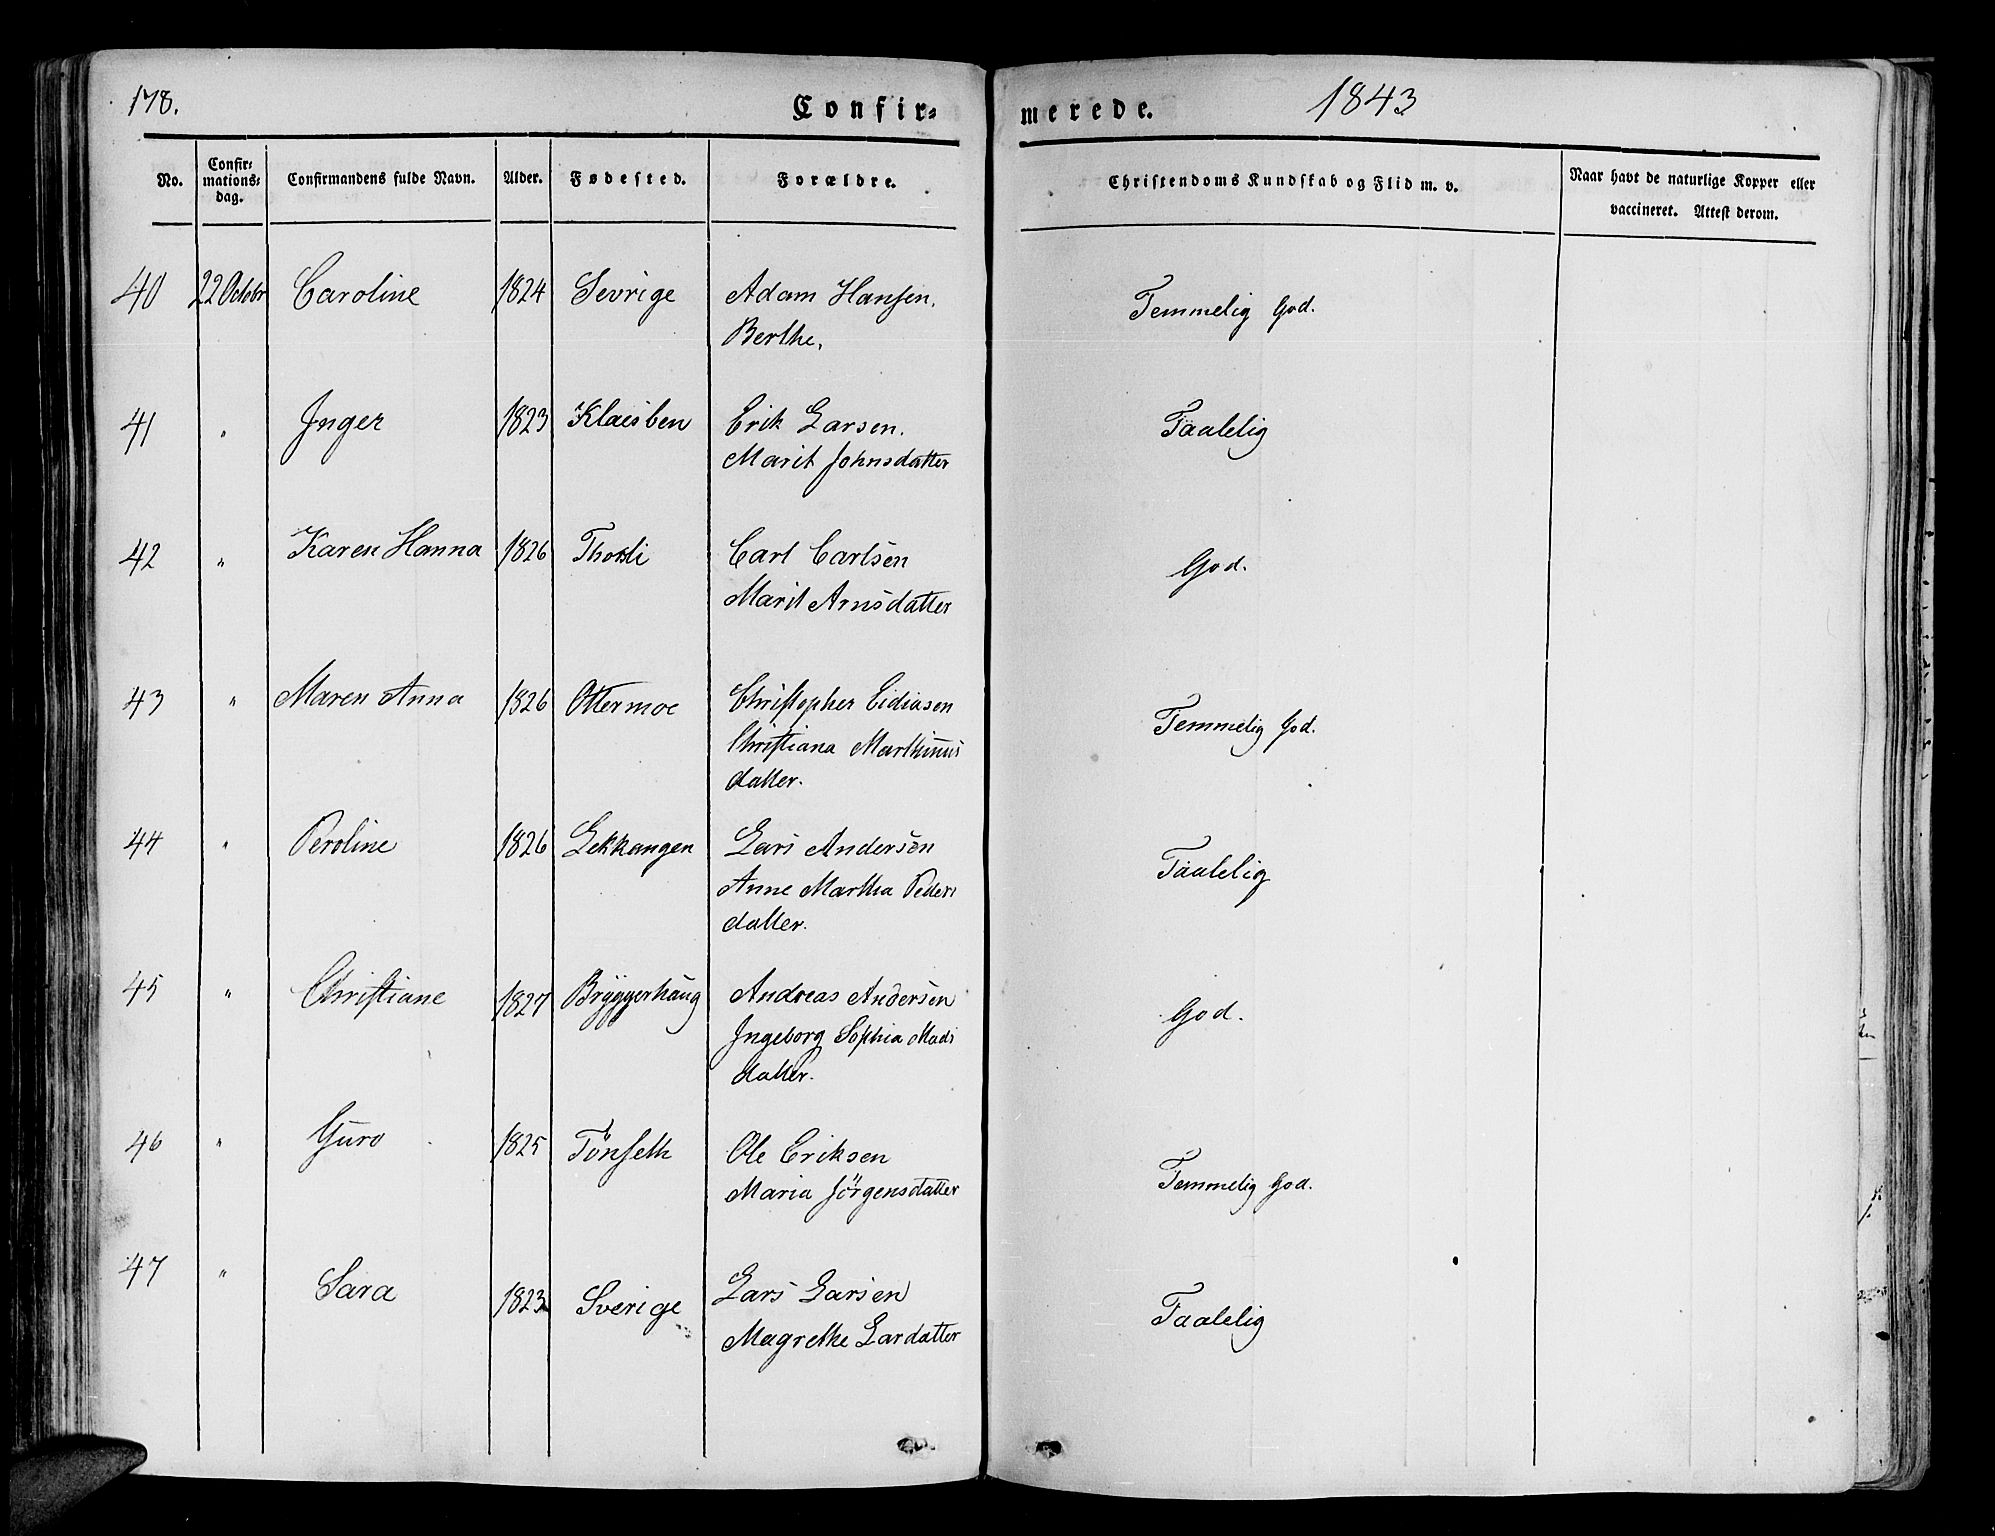 178.
Confir=
merede.
1843
No.
Confir=
mations=
dag.
Confirmandens fulde Navn.
Alder.
Fødested.
Forældre.
Christendoms Kundskab og Flid m. v.
Naar havt de naturlige Kopper eller
vaccineret. Attest derom.
40 22 Octobr Caroline 1824 Sevrige Adam Hansen. Temmelig God.
Berthe.
41 " Inger 1823 Klaesben Erik Larsen. Taalelig
Marit Johnsdatter
42 " Karen Hanna 1826 Carl Carlsen God.
Marit Arnsdatter
43 " Maren Anna 1826 Ottermoe Christopher Eidiasen Temmelig God.
Christiana Marthinus
datter.
44 " Peroline 1826 Lekkangen Lars Andersen Taalelig
Anne Martha Peders
datter.
45 " Christiane 1827 Bryggerhaug Andreas Andersen God.
Ingeborg Sophia Mads
datter.
46 " Guro 1825 Tönseth Ole Eriksen Temmelig God.
Maria Jörgensdatter
47 " Sara 1823 Sverige Lars Larsen Taalelig
Magrethe Lardatter